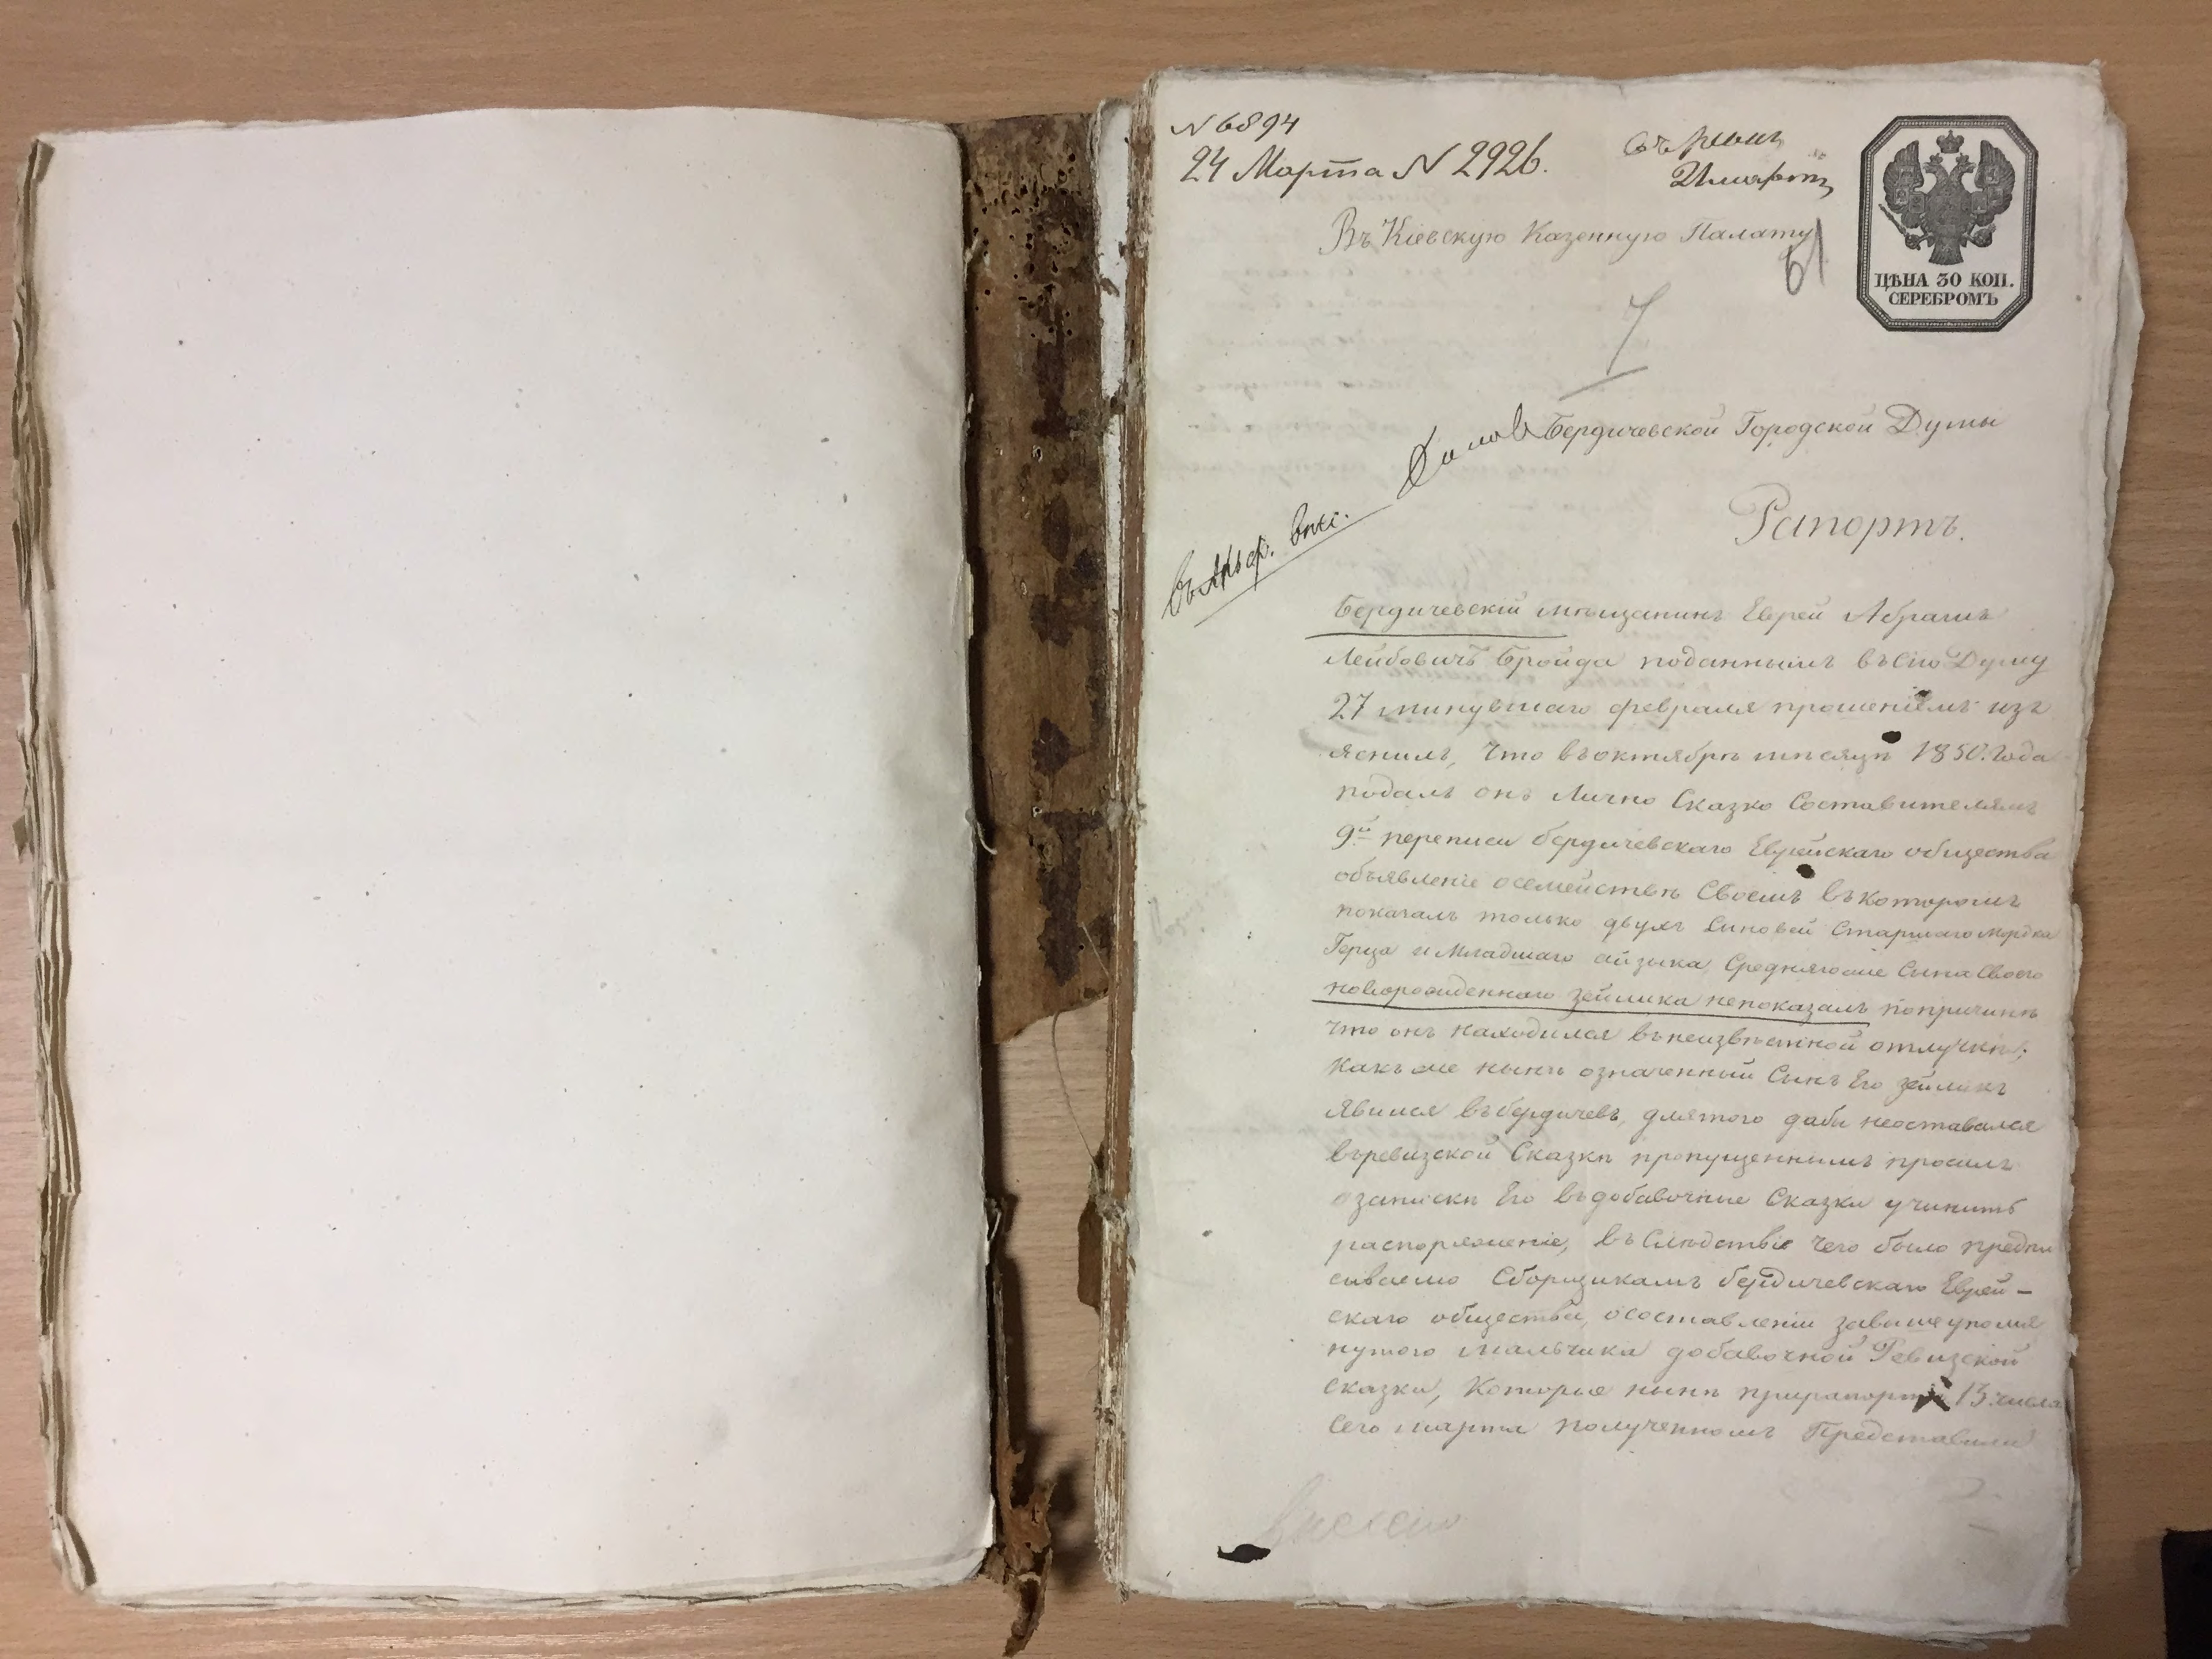 N 6894
24 Марта N 2926.
Въ Кіевскую Казенную Палату
61
ЦѢНА 30 КОП.
СЕРЕБРОМЪ
7
Бердичевской Городской Думы
Рапортъ.
Бердичевскій мѣщанинъ Еврей Абрамъ
Лейбовичъ Бройда поданнымъ въ сію Думу
27 минувшаго февраля прошеніемъ изъ
яснилъ, что въ октябрѣ мѣсяцѣ 1850. года
подалъ онъ лично Сказко Составителямъ
9й переписи бердичевскаго Еврейскаго общества
объявленіе о семействѣ Своемъ въ которомъ
показалъ только двухъ Синовей Старшаго Мордка
Герца и Младшаго айзыка, Среднягоже Сына Своего
новорожденнаго зейлика непоказалъ попричинѣ
что онъ находился въ неизвѣстной отлучки,
какъ же нынѣ означенный Сынъ Его зейликъ
явился въ бердичевъ, длятого дабы неоставался
въ ревизской Сказкѣ пропущеннымъ просилъ
о запискѣ Его въ добавочные Сказки учинить
распоряженіе, въ Слѣдствіе чего было предпи
сываемо Сборщикамъ бердичевскаго Еврей-
скаго общества, о составленіи завышеупомя
нутого мальчика добавочной Ревизской
сказки, которые нынѣ прирапортѣ 13. числа
сего марта полученномъ Представили